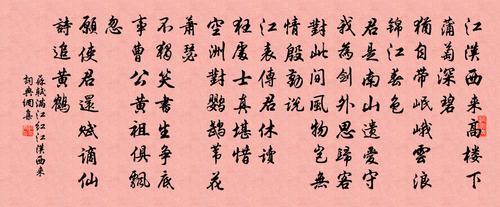 江漢西來高樓下
蒲萄深碧
猶自帶岷峨雲浪
錦江春色
君是南山遺愛守
我為劍外思歸客
對此間風物豈無
情殷勤說
江表傳君休讀
狂處士真堪惜
空洲對鸚鵡葦花
蕭瑟
不獨笑書生爭底
事曹公黃祖俱飄
忽
願使君還賦謫仙
詩追黃鶴
蘇軾滿江紅江漢西來
詞典網集